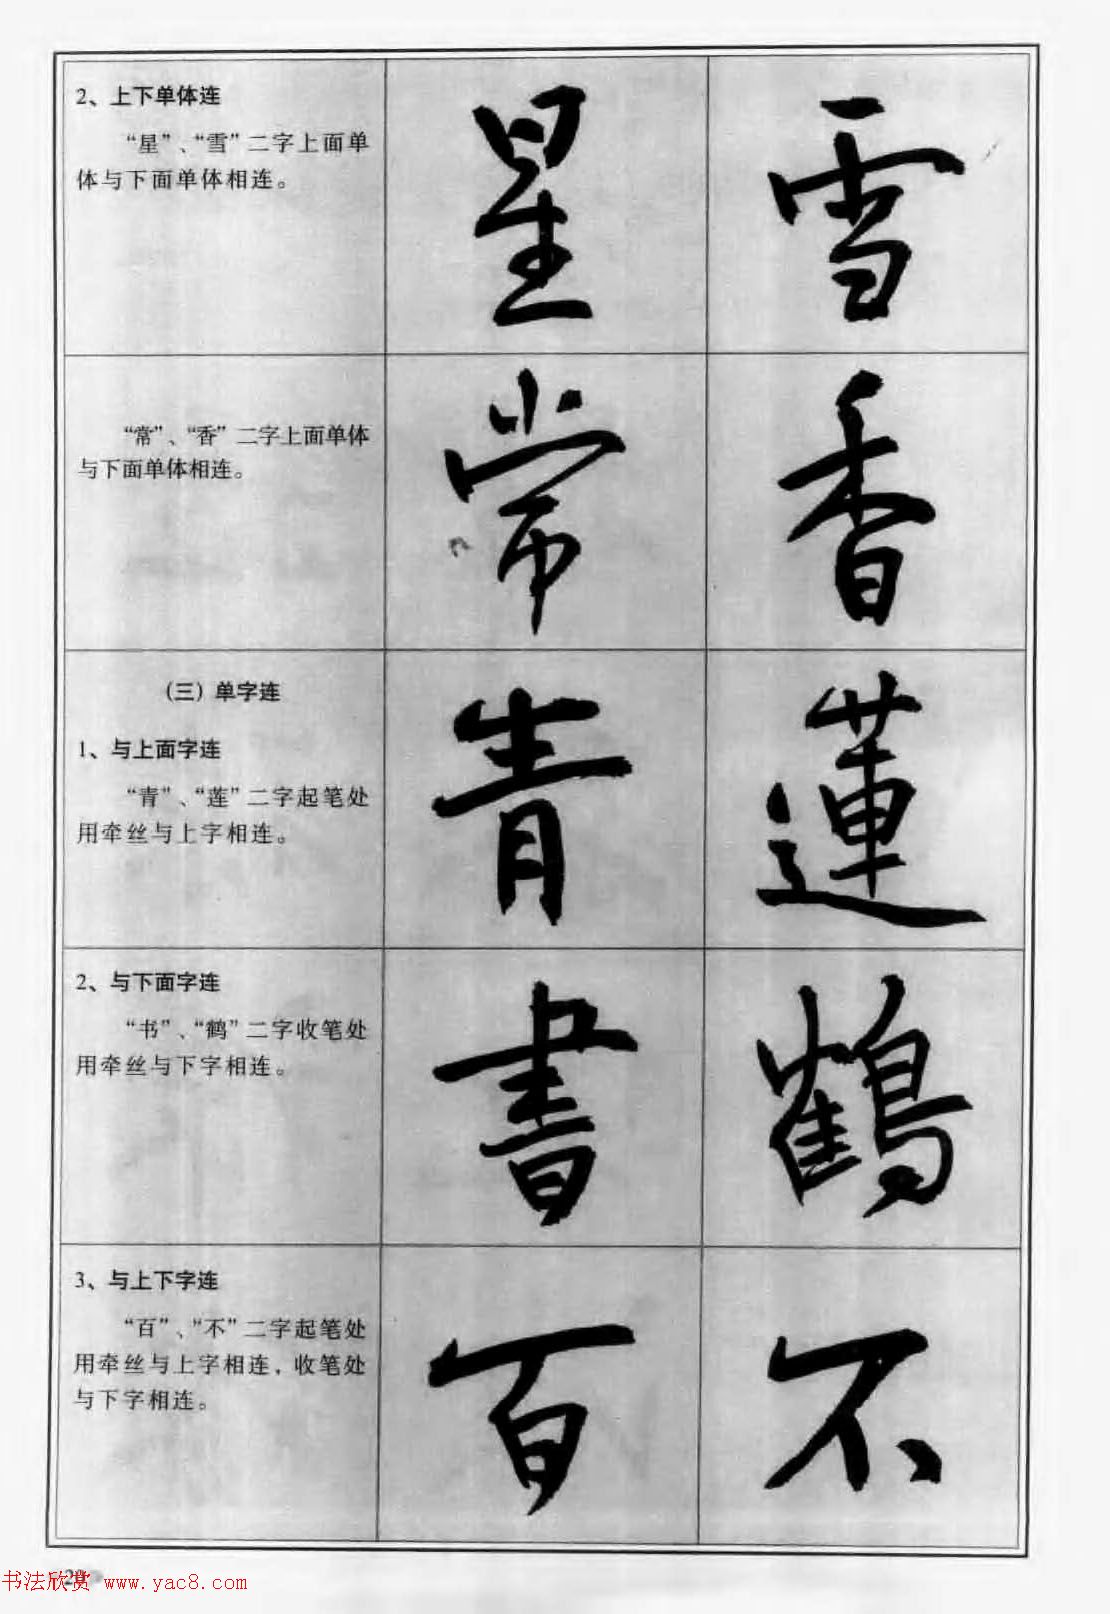 2、上下单体连
“星”、“雪”二字上面单
体与下面单体相连。
星 雪
“常”、“香”二字上面单体
与下面单体相连。
常 香
（三）单字连
1、与上面字连
“青”、“莲”二字起笔处
用牵丝与上字相连。
青 蓮
2、与下面字连
“书”、“鹤”二字收笔处
用牵丝与下字相连。
書 鶴
3、与上下字连
“百”、“不”二字起笔处
用牵丝与上字相连，收笔处
与下字相连。
百 不
书法欣赏 www.yac8.com